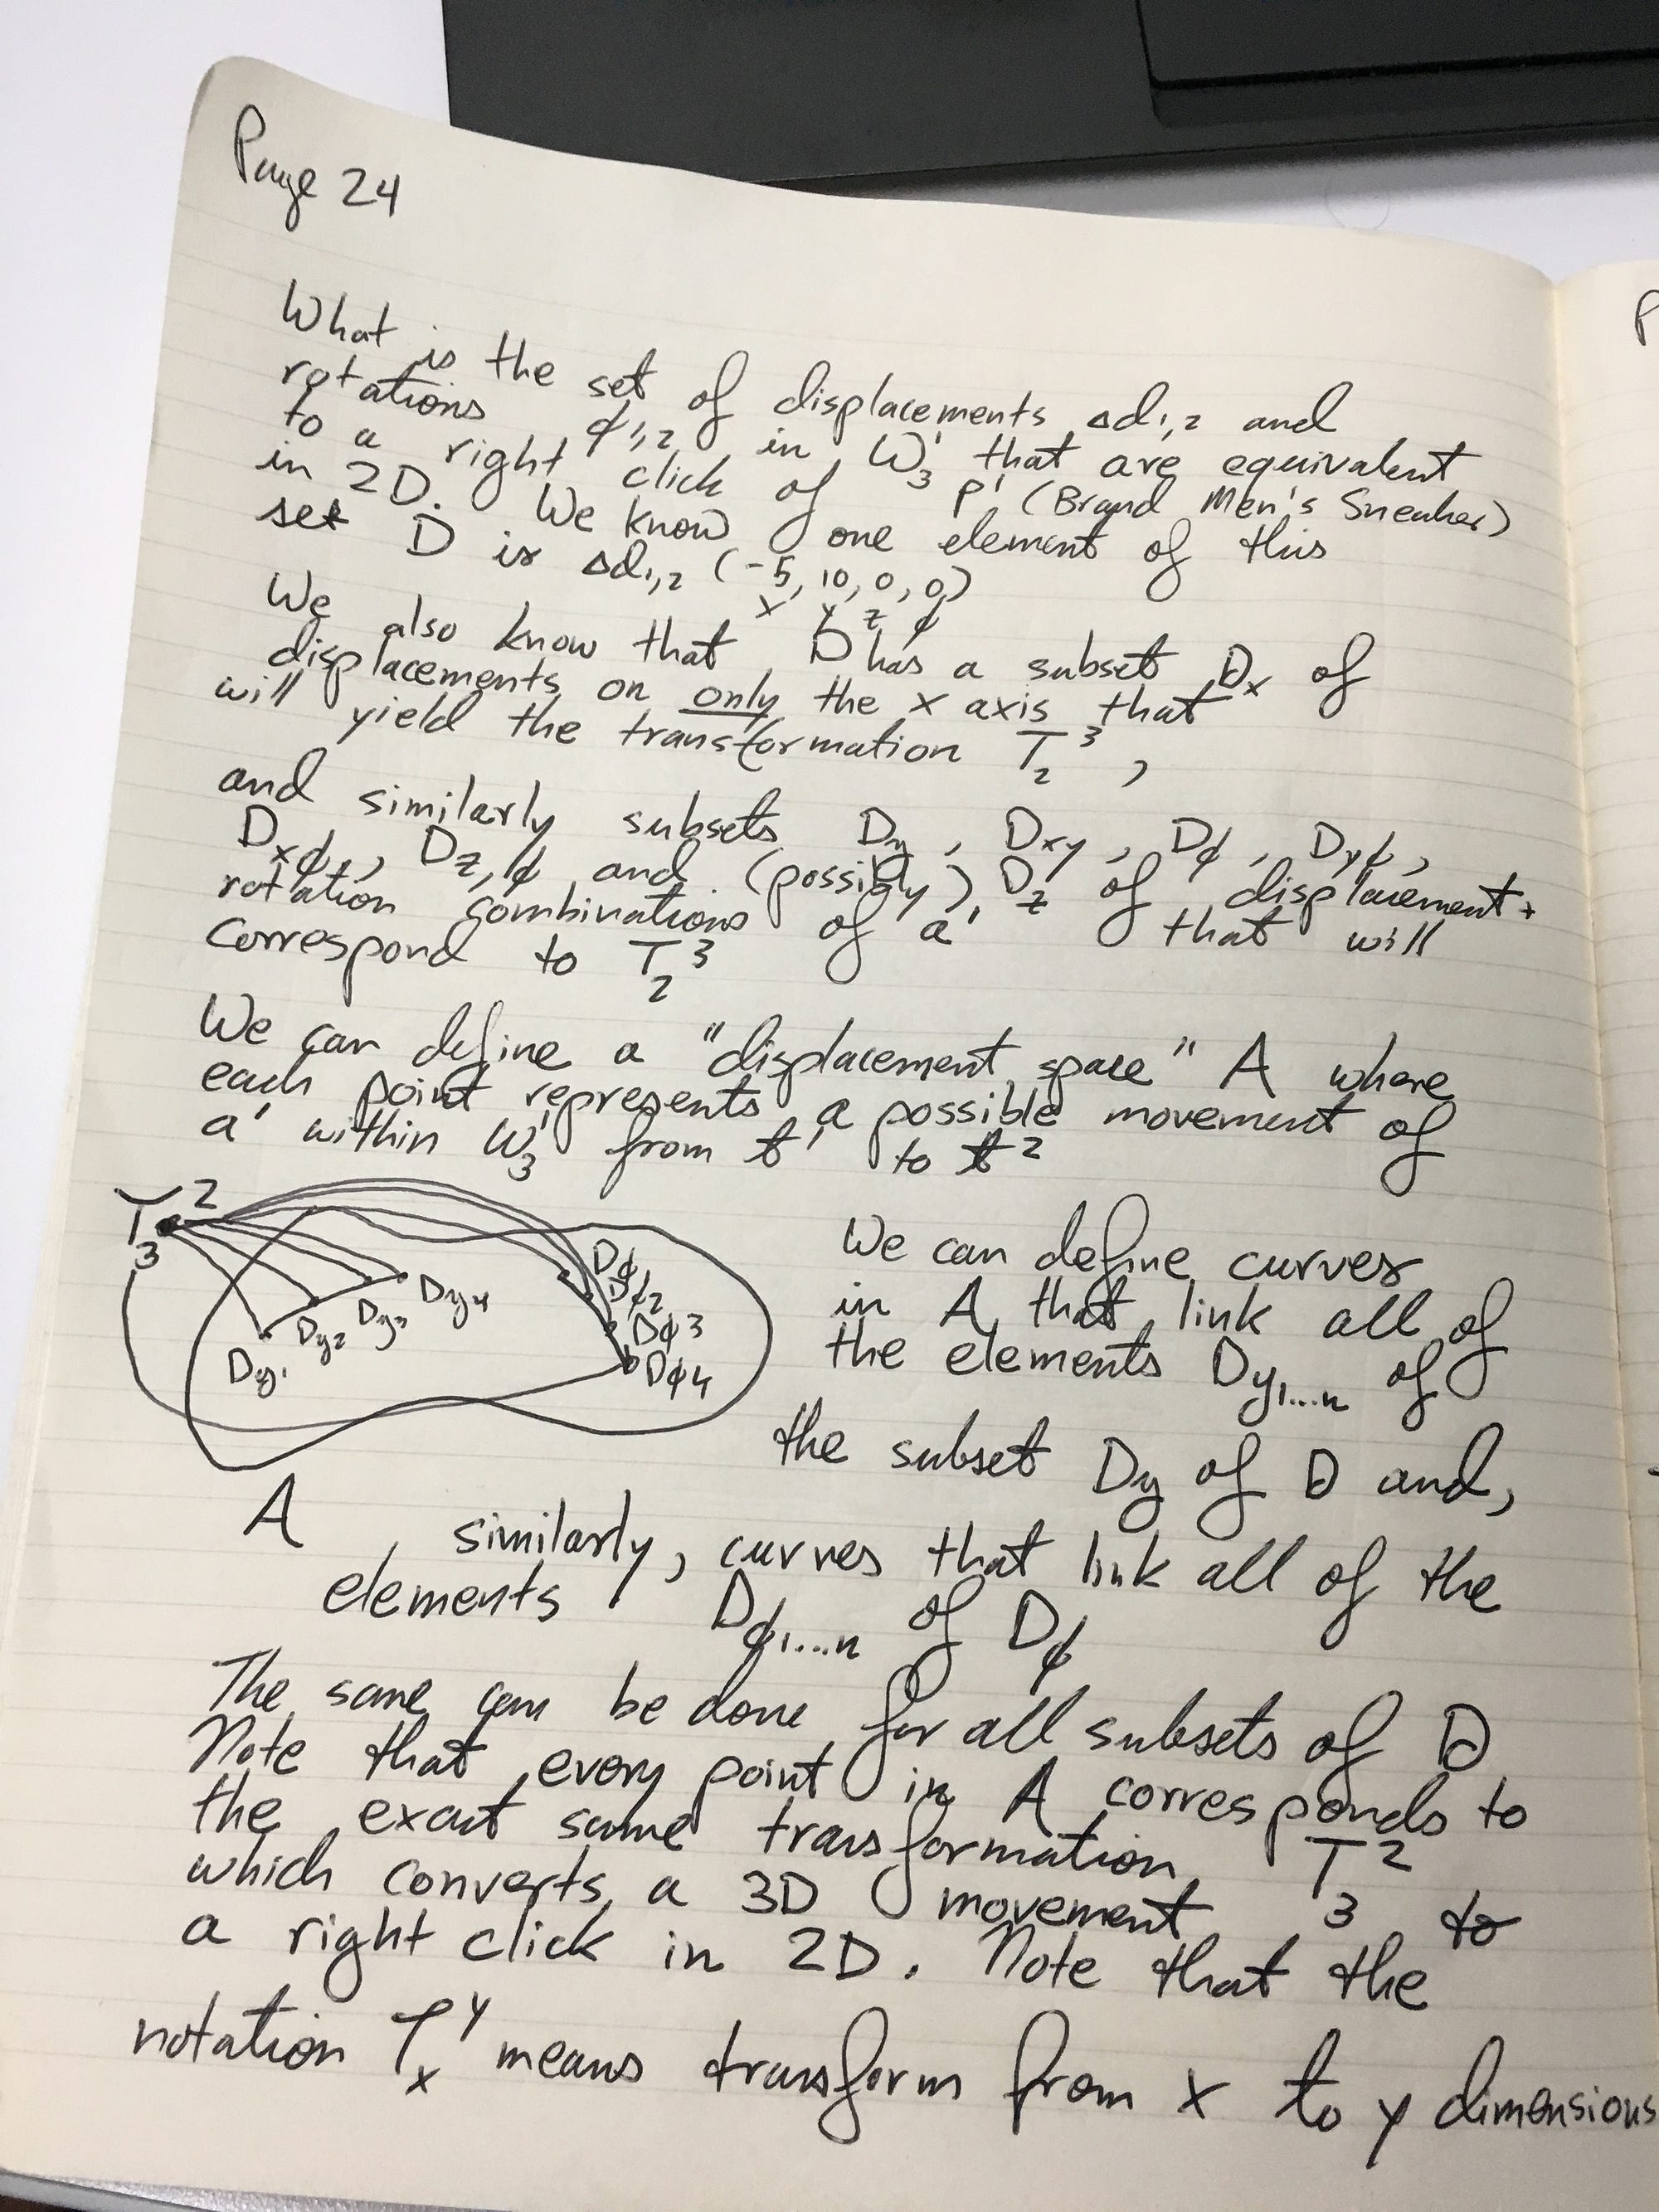 Page 24
What is the set of displacements Δd₁,₂ and
rotations ϕ₁,₂ in W₃' that are equivalent
to a right click of P' (Brand Men's Sneaker)
in 2D. We know one element of this
set D is Δd₁,₂ (-5, 10, 0, 0)
x y z ϕ
We also know that D has a subset Dₓ of
displacements on only the x axis that
will yield the transformation T₂³,
and similarly subsets Dy, Dxy, Dϕ, Dyϕ,
Dxϕ, Dz,ϕ and (possibly) Dz of displacement +
rotation combinations of a' that will
correspond to T₂³
We can define a "displacement space" A where
each point represents a possible movement of
a' within W₃' from t' to t²
T₃²
Dy₁ Dy₂ Dy₃ Dy₄
Dϕ₁
Dϕ₂
Dϕ3
Dϕ4
A
We can define curves
in A that link all of
the elements Dy₁...n of
the subset Dy of D and,
similarly, curves that link all of the
elements Dϕ₁...n of Dϕ
The same can be done for all subsets of D
Note that every point in A corresponds to
the exact same transformation T₃²
which converts a 3D movement to
a right click in 2D. Note that the
notation Tₓʸ means transform from x to y dimensions
P